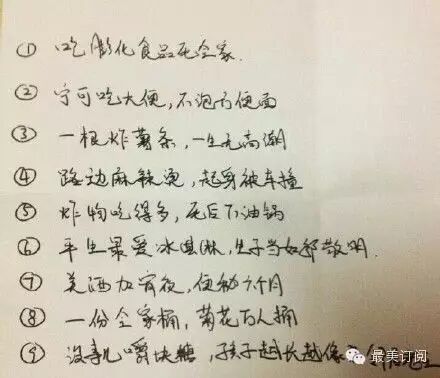 ① 吃膨化食品死全家.
② 宁可吃大便,不泡方便面
③ 一根炸薯条,一生无高潮
④ 路边麻辣烫,起身被车撞
⑤ 炸物吃得多,死后下油锅
⑥ 平生最爱冰淇淋,生子当如郭敬明.
⑦ 美酒加宵夜,便秘六个月
⑧ 一份全家桶,菊花百人捅
⑨ 没事儿嚼块糖,孩子越长越像
最美订阅